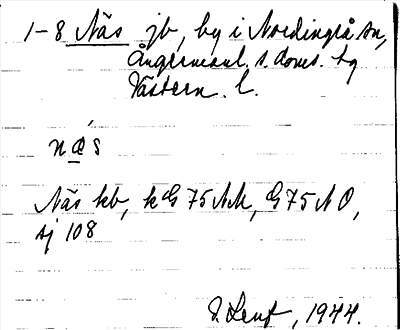 1-8 Näs jb, by i Nordingrå sn,
Ångermanl. s. doms. tg
Västern. l.
næ´s
Näs kb, kG 75 NM, G 75 NO,
sj 108
1944.